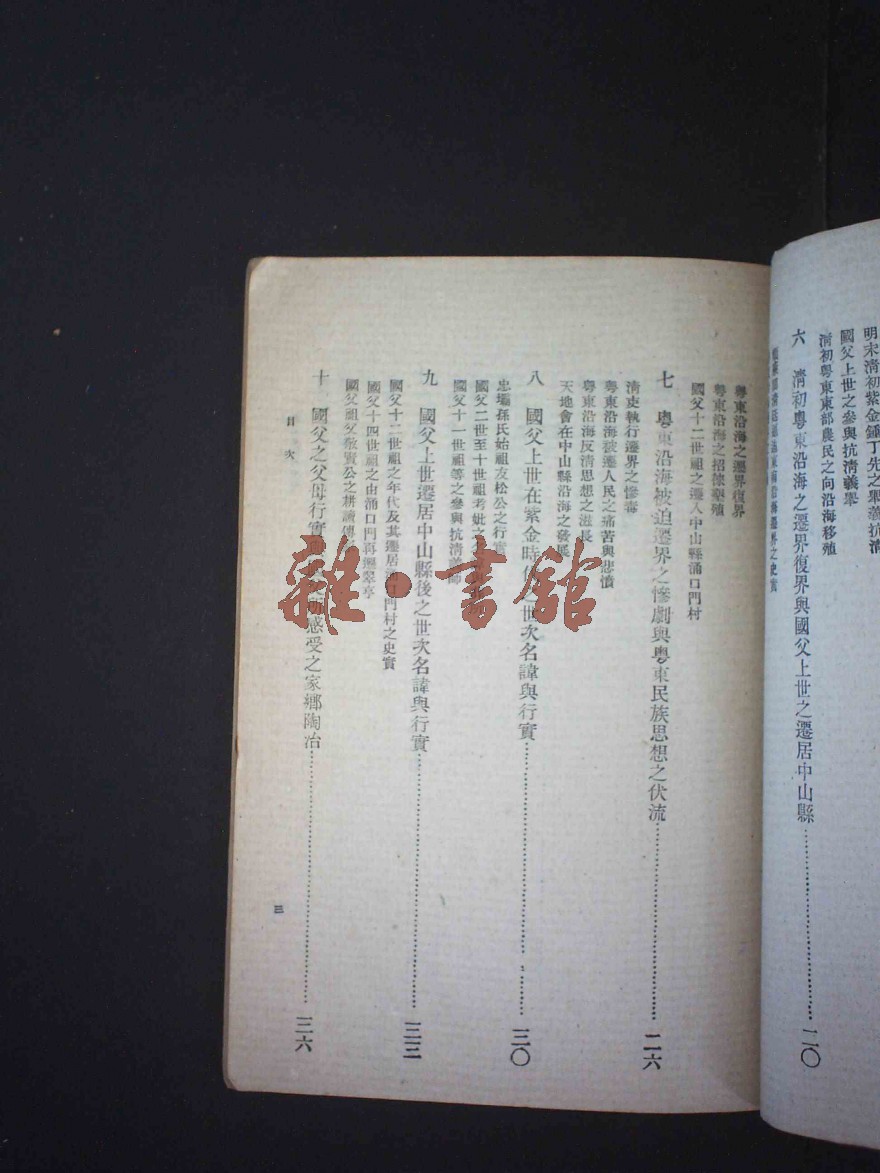 明末清初紫金鍾丁先之聚善抗清
國父上世之參與抗清義舉
清初粵東東部農民之向沿海移殖
六 清初粵東沿海之遷界復界與國父上世之遷居中山縣……二〇
遷界之史實
粵東沿海之遷界復界
粵東沿海之招徠墾殖
國父十二世祖之遷入中山縣涌口門村
七 粵東沿海被迫遷界之慘劇與粵東民族思想之伏流……二六
清吏執行遷界之慘毒
粵東沿海被遷人民之痛苦與悲憤
粵東沿海反清思想之滋長
天地會在中山縣沿海之發展
八 國父上世在紫金時代 世次名諱與行實……三〇
忠壩孫氏始祖友松公之行
國父二世至十世祖考妣之
國父十一世祖等之參與抗清義師
九 國父上世遷居中山縣後之世次名諱與行實……三三
國父十二世祖之年代及其遷居涌口門村之史實
國父十四世祖之由涌口門再遷翠亨
國父祖父敬賢公之耕讀傳
十 國父之父母行實 所感受之家鄉陶冶……三六
目次
三
雜·書館